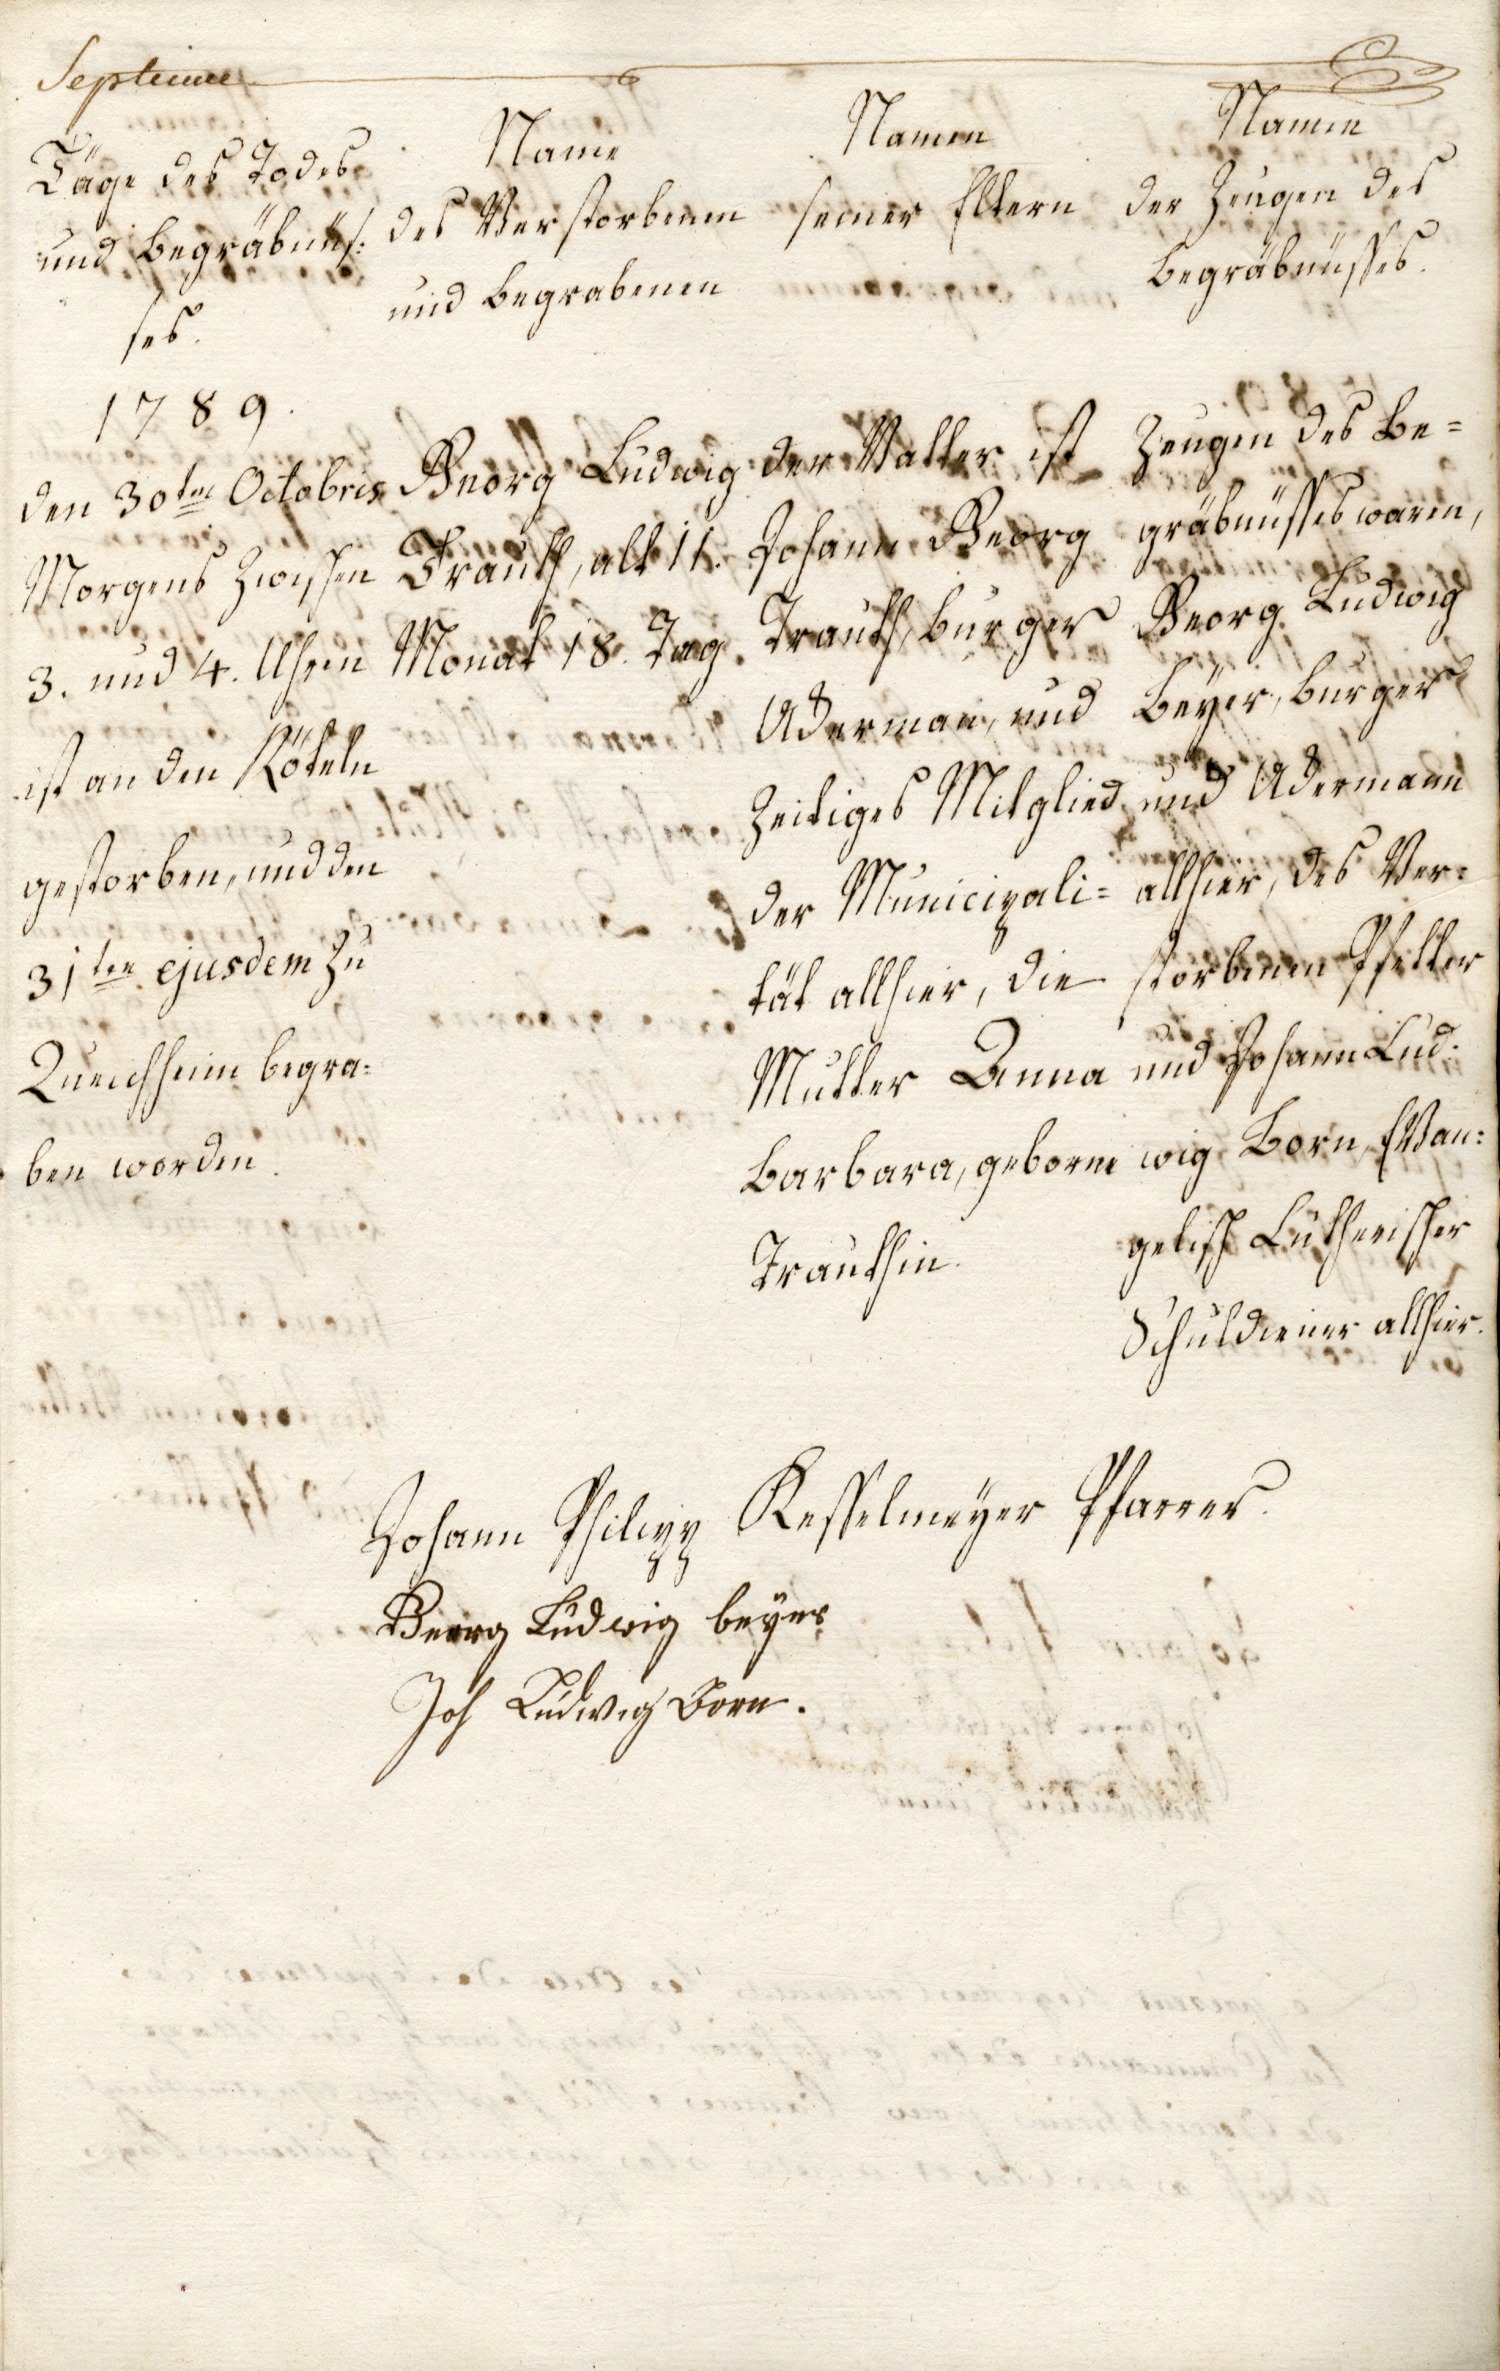 Septieme
Täge des Todes
und Begräbnüs:
ses.
Name
des Verstorbenen
und Begrabenen
Namen
seiner Eltern
Namen
der Zeugen des
Begräbnüsses.
1789.
den 30ten Octobris
Morgens zwischen
3. und 4. Uhren
ist an den Rötheln
gestorben, und den
31ten ejusdem zu
Queichheim begra:
ben worden.
Georg Ludwig
Trauth, alt 11.
Monat 18. Tag.
der Vatter ist
Johann Georg
Trauth, burger
Ackerman, und
zeitiges Mitglied
der Municipali=
tät allhier, die
Mutter Anna
Barbara, geborne
Trauthin.
Zeugen des Be=
gräbnüsses waren,
Georg Ludwig
Beÿer, burger
und Ackermann
allhier, des Ver:
storbenen Pfetter
und Johann Lud:
wig Born, Evan:
gelisch Lutherischer
Schuldiener allhier.
Johann Philipp Kesselmeÿer Pfarrer.
Georg Ludwig beyer
Joh Ludwig Born.